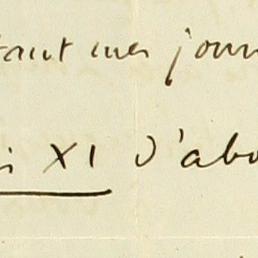 tant mes jour
is XI d'abo